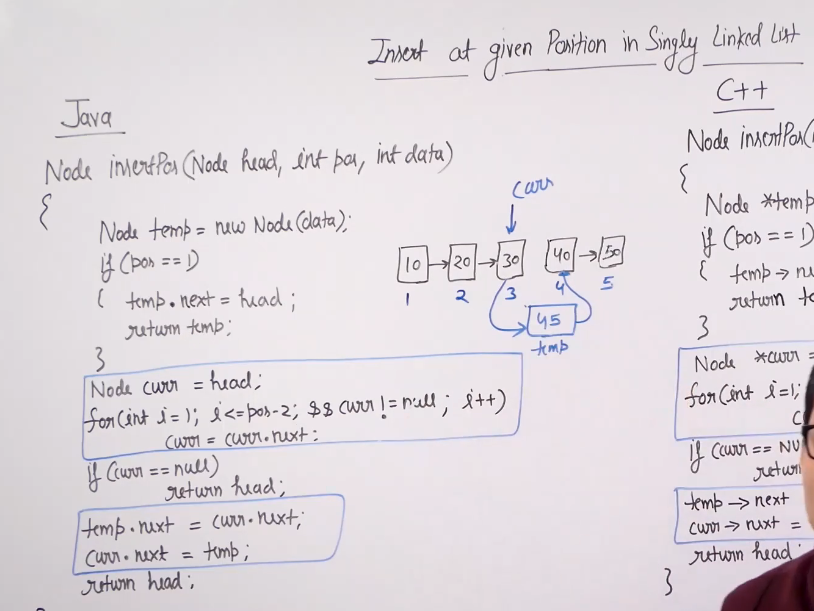 Insert at given Position in Singly Linked List
Java
Node insertPos(Node head, int pos, int data)
{
Node temp = new Node(data);
if (pos == 1)
{ temp.next = head;
return temp;
}
Node curr = head;
for(int i=1; i<=pos-2; && curr != null; i++)
curr = curr.next;
if (curr == null)
return head;
temp.next = curr.next;
curr.next = temp;
return head;
curr
10 → 20 → 30 40 → 50
1 2 3 4 5
45
temp
C++
Node insertPos(
{
Node *temp
if (pos == 1)
{ temp → ne
return te
}
Node *curr =
for(int i=1;
c
if (curr == NU
return
temp → next
curr → next =
return head;
}